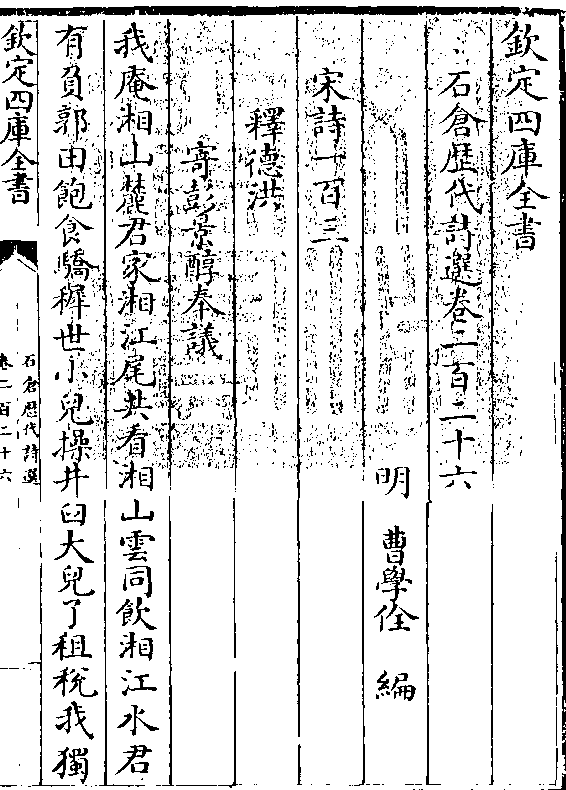 欽定四庫全書
石倉歴代詩選卷二百二十六
明 曹學佺 編
宋詩一百三
釋德洪
寄彭景醇奉議
我庵湘山麓君家湘江尾共看湘山雲同飲湘江水君
有負郭田飽食驕穉世小兒操井臼大兒了租稅我獨
欽定四庫全書
石倉歴代詩選
卷二百二十六